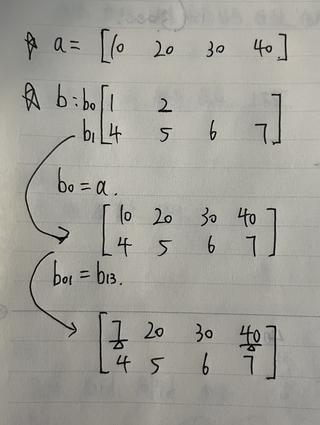 ☆ a = [10 20 30 40]
☆ b : b0 [1 2
b1 4 5 6 7]
b0 = a.
[10 20 30 40
4 5 6 7]
b01 = b13.
[7 20 30 40
4 5 6 7]